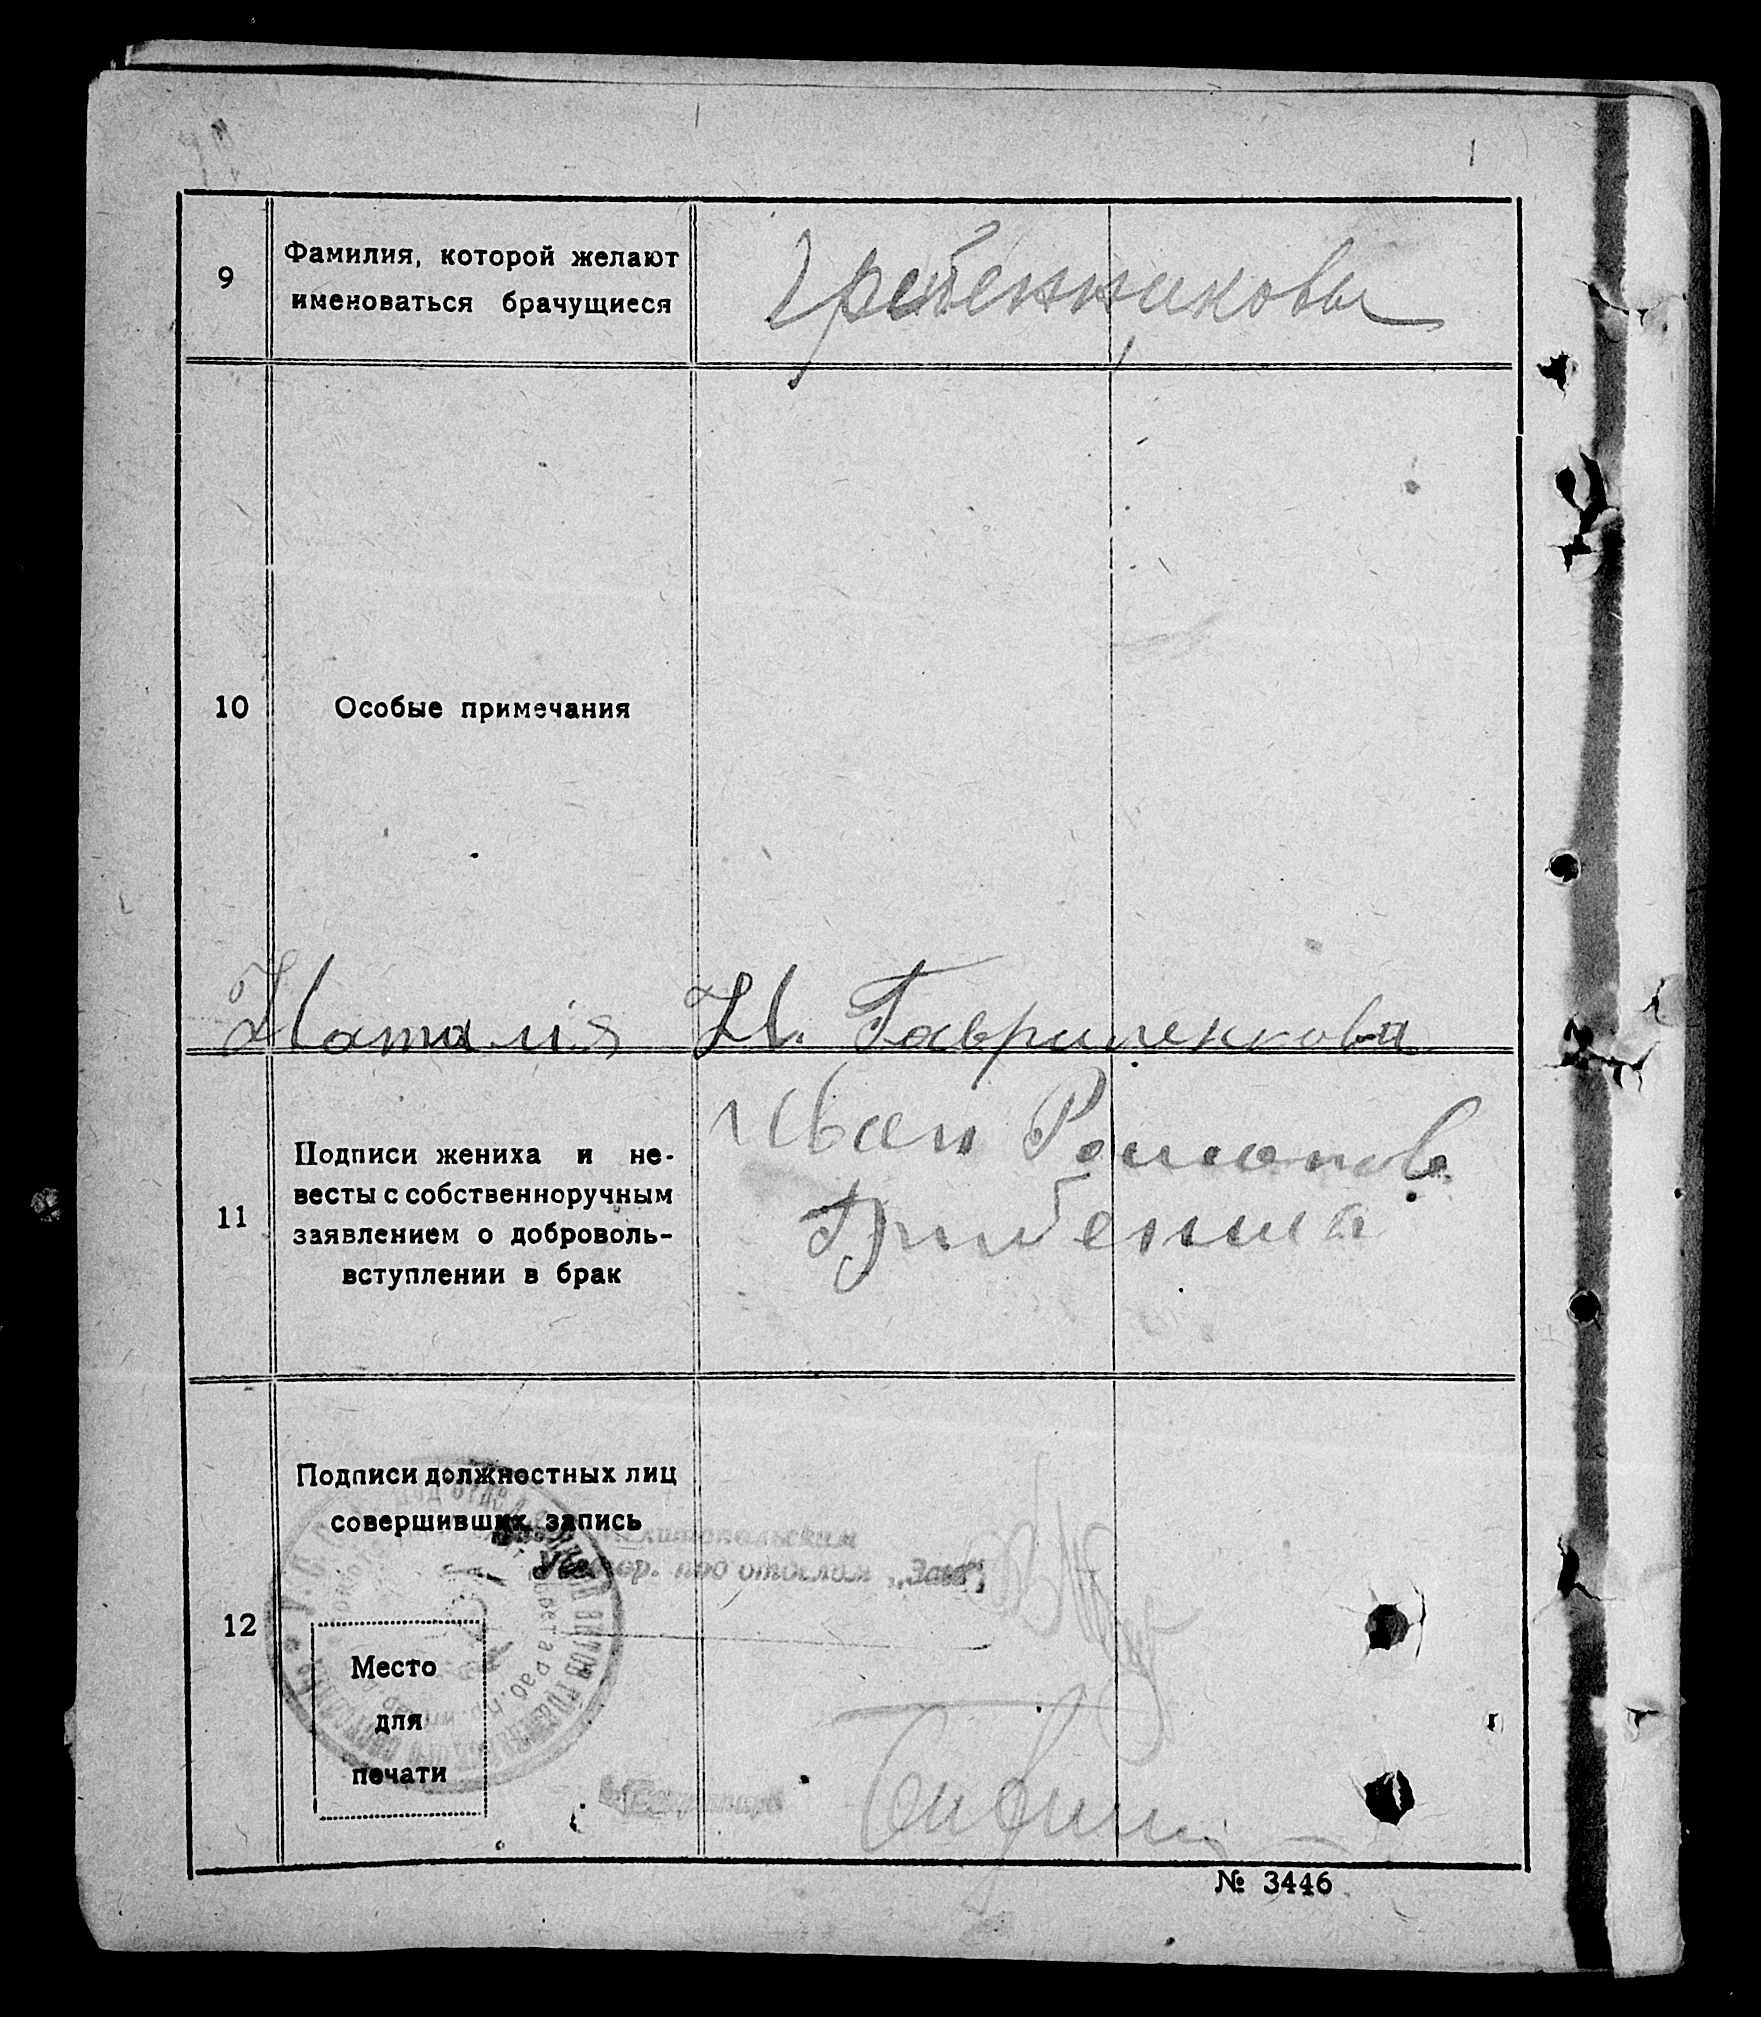 9
Фамилия, которой желают
именоваться брачущиеся
Гребенниковы
10
Особые примечания
Наталия Н. Гавриленкова
11
Подписи жениха и не-
весты с собственноручным
заявлением о доброволь-
вступлении в брак
Иван Романов
12
Подписи должностных лиц
совершивших запись
под отдел
Место
для
печати
№ 3446